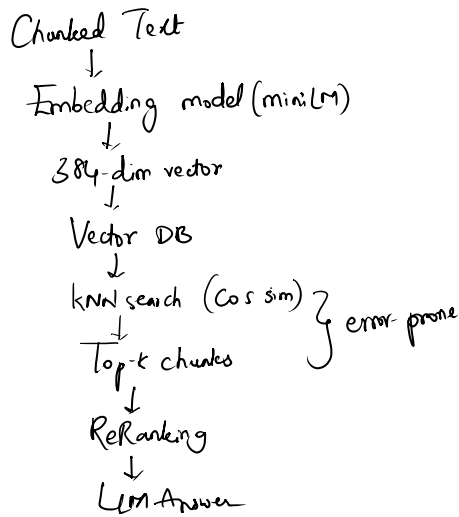 Chunked Text
Embedding model (miniLM)
384-dim vector
Vector DB
kNN search (Cos sim)
error-prone
Top-k chunks
ReRanking
LLM Answer